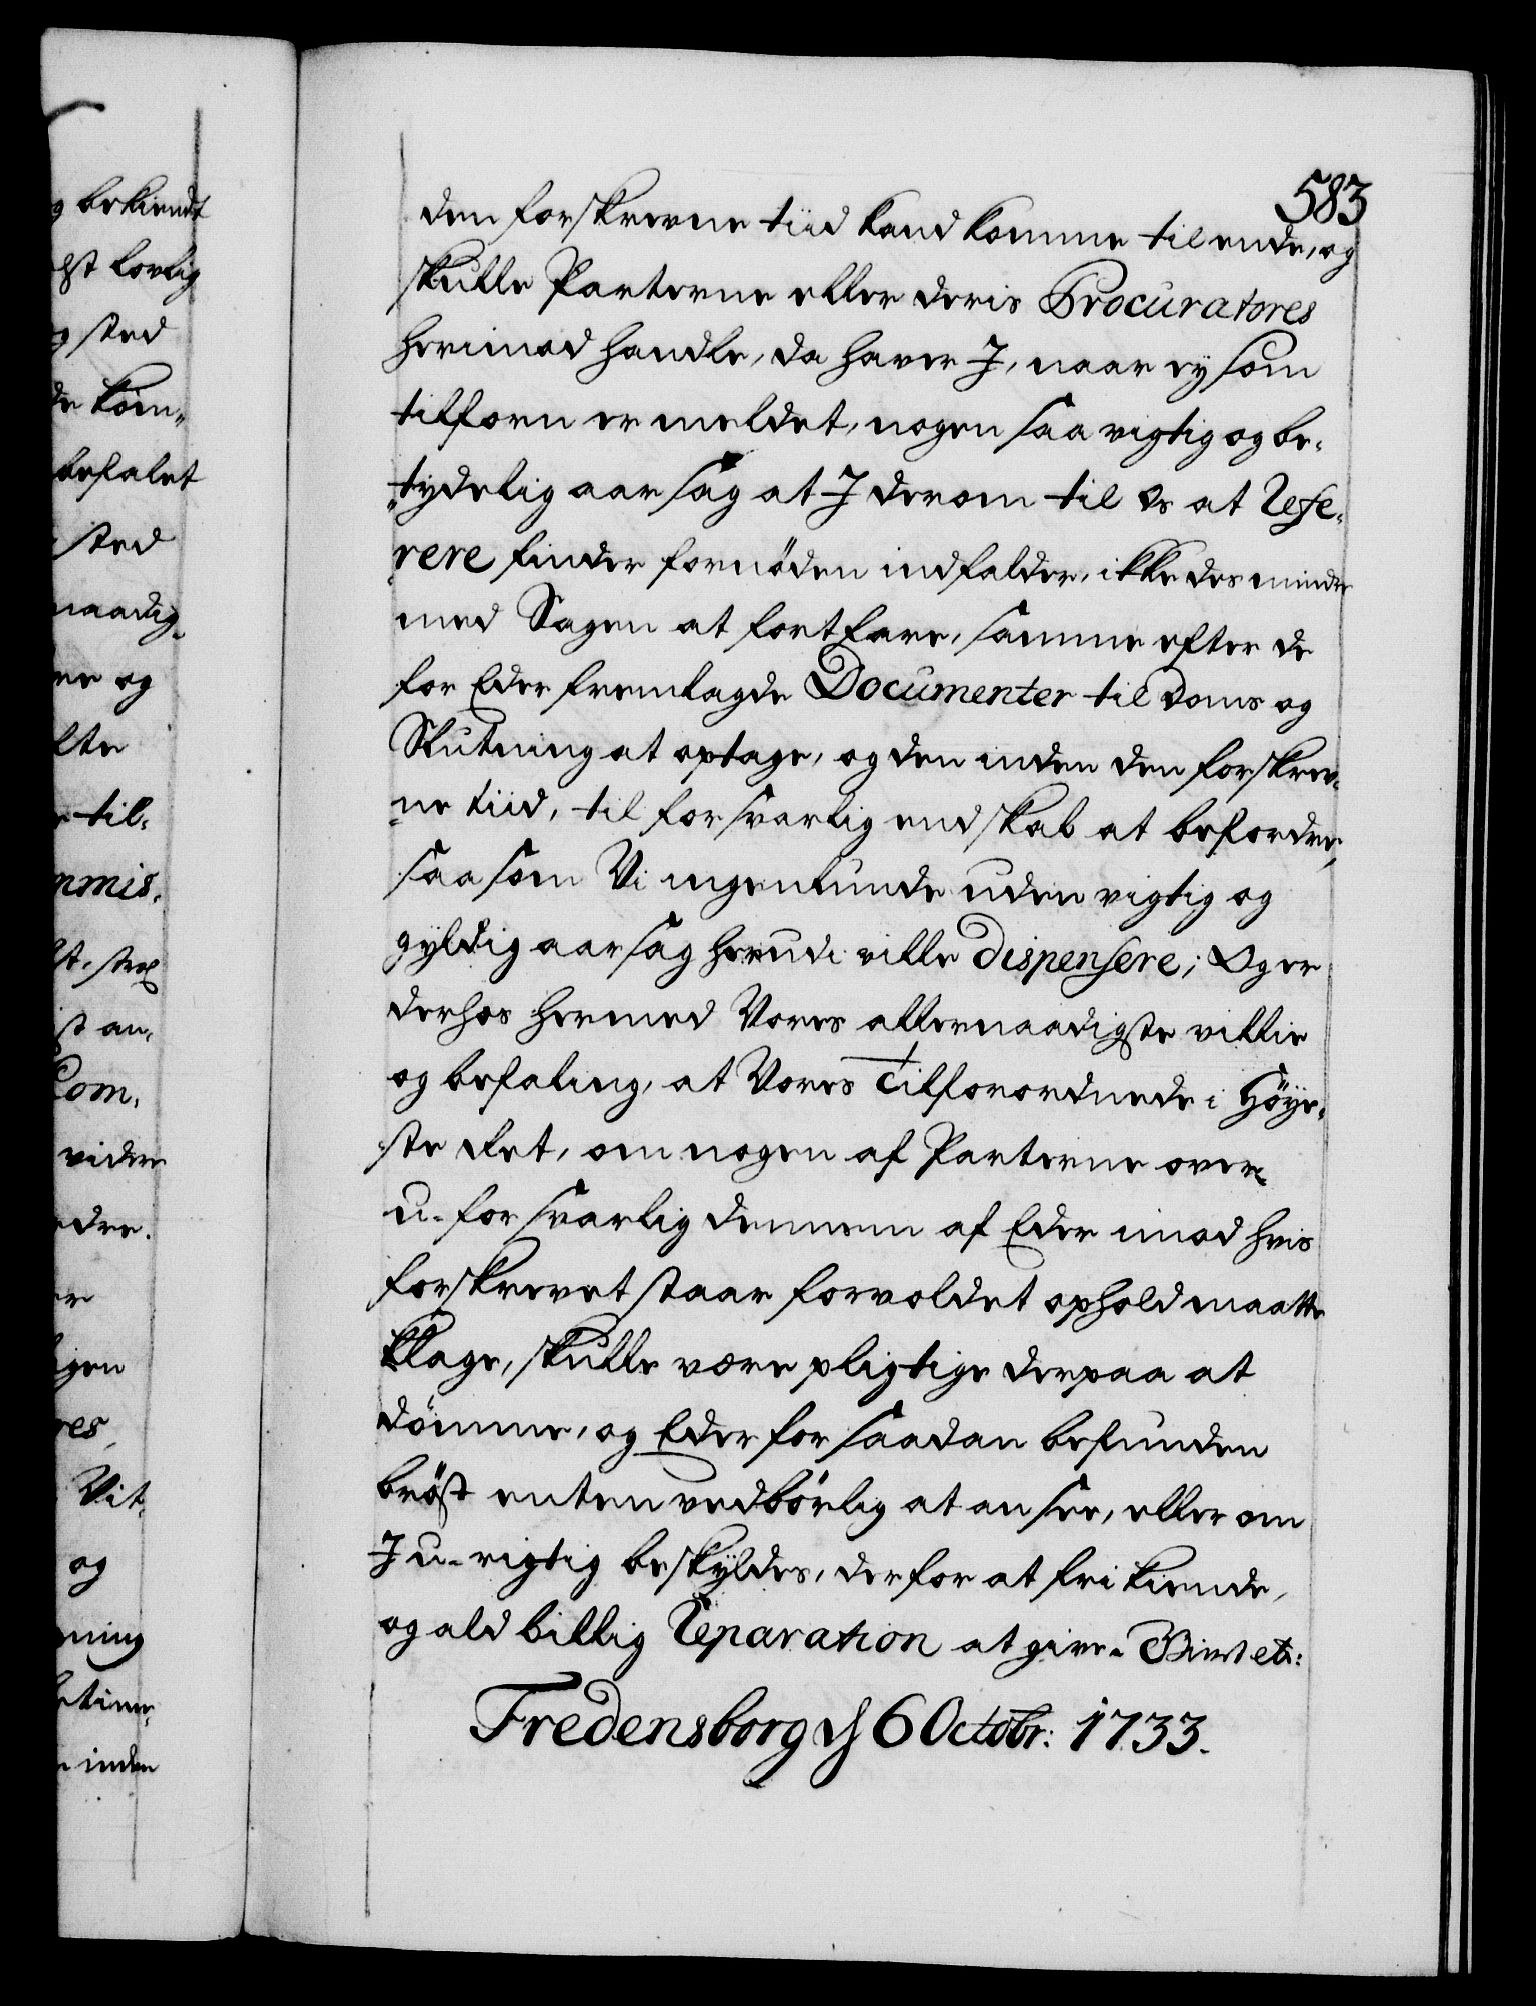 583
den forskrevne tiid kand komme til ende, og
skulle Parterne eller deris Procuratores
herimod handle, da haver I, naar ey som
tilforn er meldet, nogen saa vigtig og be-
tydelig aarsag at I derom til Os at Refe-
rere finder fornöden indfalder, ikke des mindre
med Sagen at fortfare, samme efter de
for Eder fremlagde Documenter til Doms og
Slutning at optage, og den inden den forskrev-
ne tiid, til forsvarlig endskab at befordre,
saasom Vi ingenlunde uden vigtig og
gyldig aarsag herudi ville dispensere; Og er
derhos hermed Vores allernaadigste villie
og befaling, at Vores Tilforordnede i Höye-
ste Ret, om nogen af Parterne over
u-forsvarlig dennem af Eder imod hvis
forskrevet staar forvoldet ophold maatte
klage, skulle være pligtige derpaa at
dömme, og Eder for saadan befunden
bröst enten vedbörlig at ansee, eller om
I u-rigtig beskyldes, derfor at frikiende,
og ald billig Reparation at give. etc:
Fredensborg d 6 Octobr: 1733.
g bekiendt
lst lovlig
g sted
de kom-
befalet
sted
naadig-
re og
lte
til-
mmis-
st an-
Com-
videre
edre.
er
gen
res,
Vit-
og
ning
inden